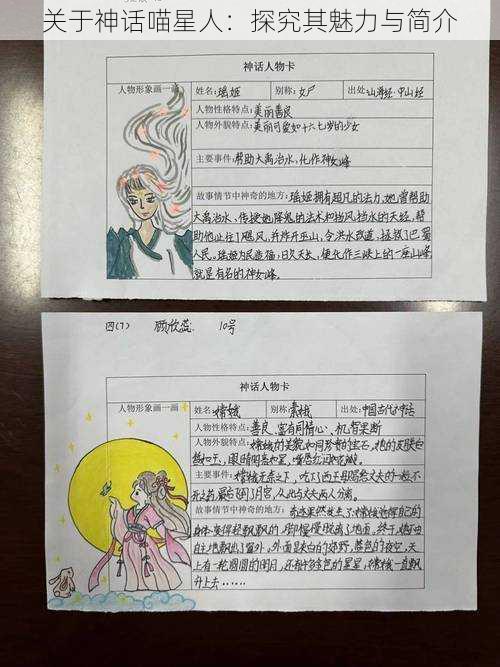 关于神话喵星人：探究其魅力与简介
神话人物卡
人物形象画一画
姓名：瑶姬 别称：女尸 出处：山海经·中山经
人物性格特点：美丽善良
人物外貌特点：美丽可爱如十六七岁的少女
主要事件：帮助大禹治水，化作神女峰
故事情节中神奇的地方：瑶姬拥有超凡的法力，她曾帮助
大禹治水、传授她降鬼的法术和挡风挡水的天经，帮
助他止住了飓风，并炸开巫山，令洪水改道，拯救了巴蜀
人民。瑶姬为民造福，日久天长，便化作三峡上的一座山峰
就是有名的神女峰。
四(7) 顾欣蕊 10号
神话人物卡
人物形象画一画
姓名：嫦娥 别称：素娥 出处：中国古代神话
人物性格特点：善良、富有同情心、机智果断
人物外貌特点：嫦娥的美貌如同珍贵的宝石，她的皮肤白
主要事件：嫦娥无奈之下，吃下了西王母赐给丈夫的一般不
死之药，最后飞到了月宫，从此与丈夫两人分离。
故事情节中神奇的地方：奇迹果然发生了：嫦娥觉得自己的
身体变得轻飘飘的，脚慢慢脱离了地面，终于，她不由
自主地飘出了窗外，外面是灰白的郊野，蓝色的夜空，天
上有一轮圆圆的明月，还有许多金色的星星，嫦娥一直飘
升上去……